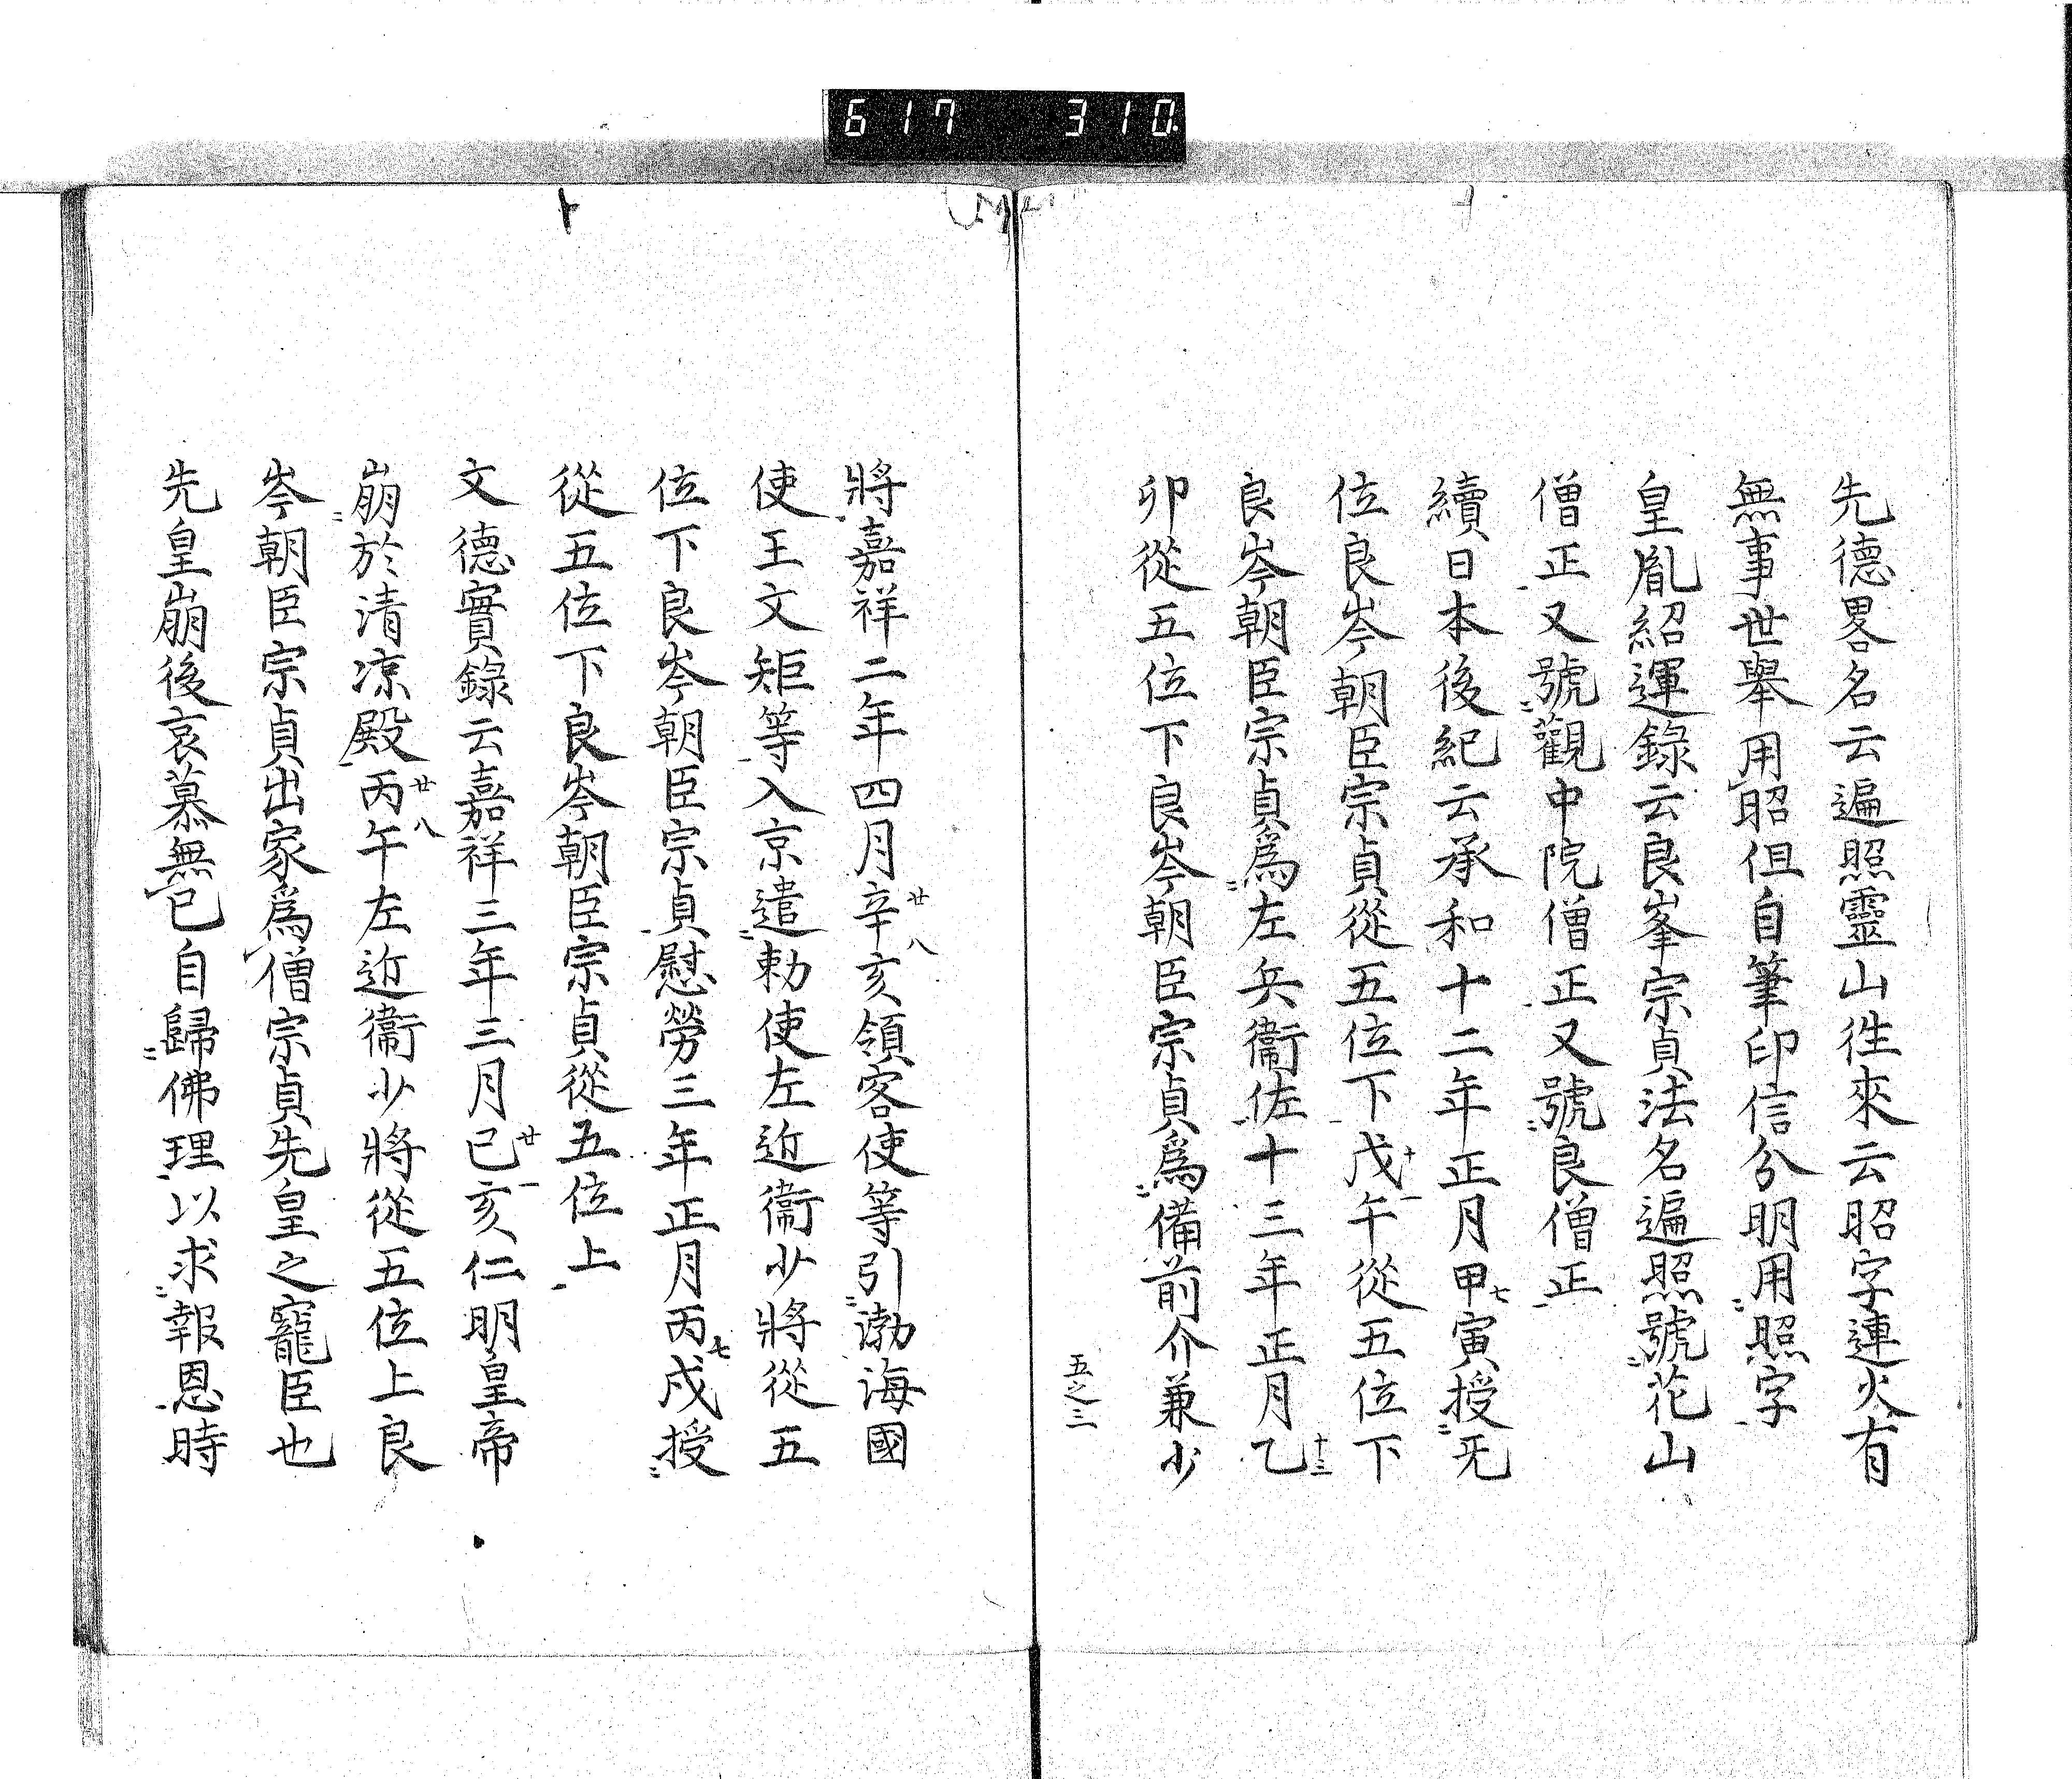 617 310
先德畧名云遍照靈山徃來云昭字連火有
無事世舉用昭但自筆印信分明用照字
皇胤紹運錄云良峯宗貞法名遍照號花山
僧正又號觀中院僧正又號良僧正
續日本後紀云承和十二年正月甲七寅授无
位良岑朝臣宗貞從五位下戊十一午從五位下
良岑朝臣宗貞爲左兵衞佐十三年正月乙十三
卯從五位下良岑朝臣宗貞爲備前介兼少
五之三
將嘉祥二年四月辛廿八亥領客使等引渤海國
使王文矩等入京遣勅使左近衞少將從五
位下良岑朝臣宗貞慰勞三年正月丙七戌授
從五位下良岑朝臣宗貞從五位上
文德實錄云嘉祥三年三月己廿一亥仁明皇帝
崩於清凉殿丙廿八午左近衞少將從五位上良
岑朝臣宗貞出家爲僧宗貞先皇之寵臣也
先皇崩後哀慕無已自歸佛理以求報恩時